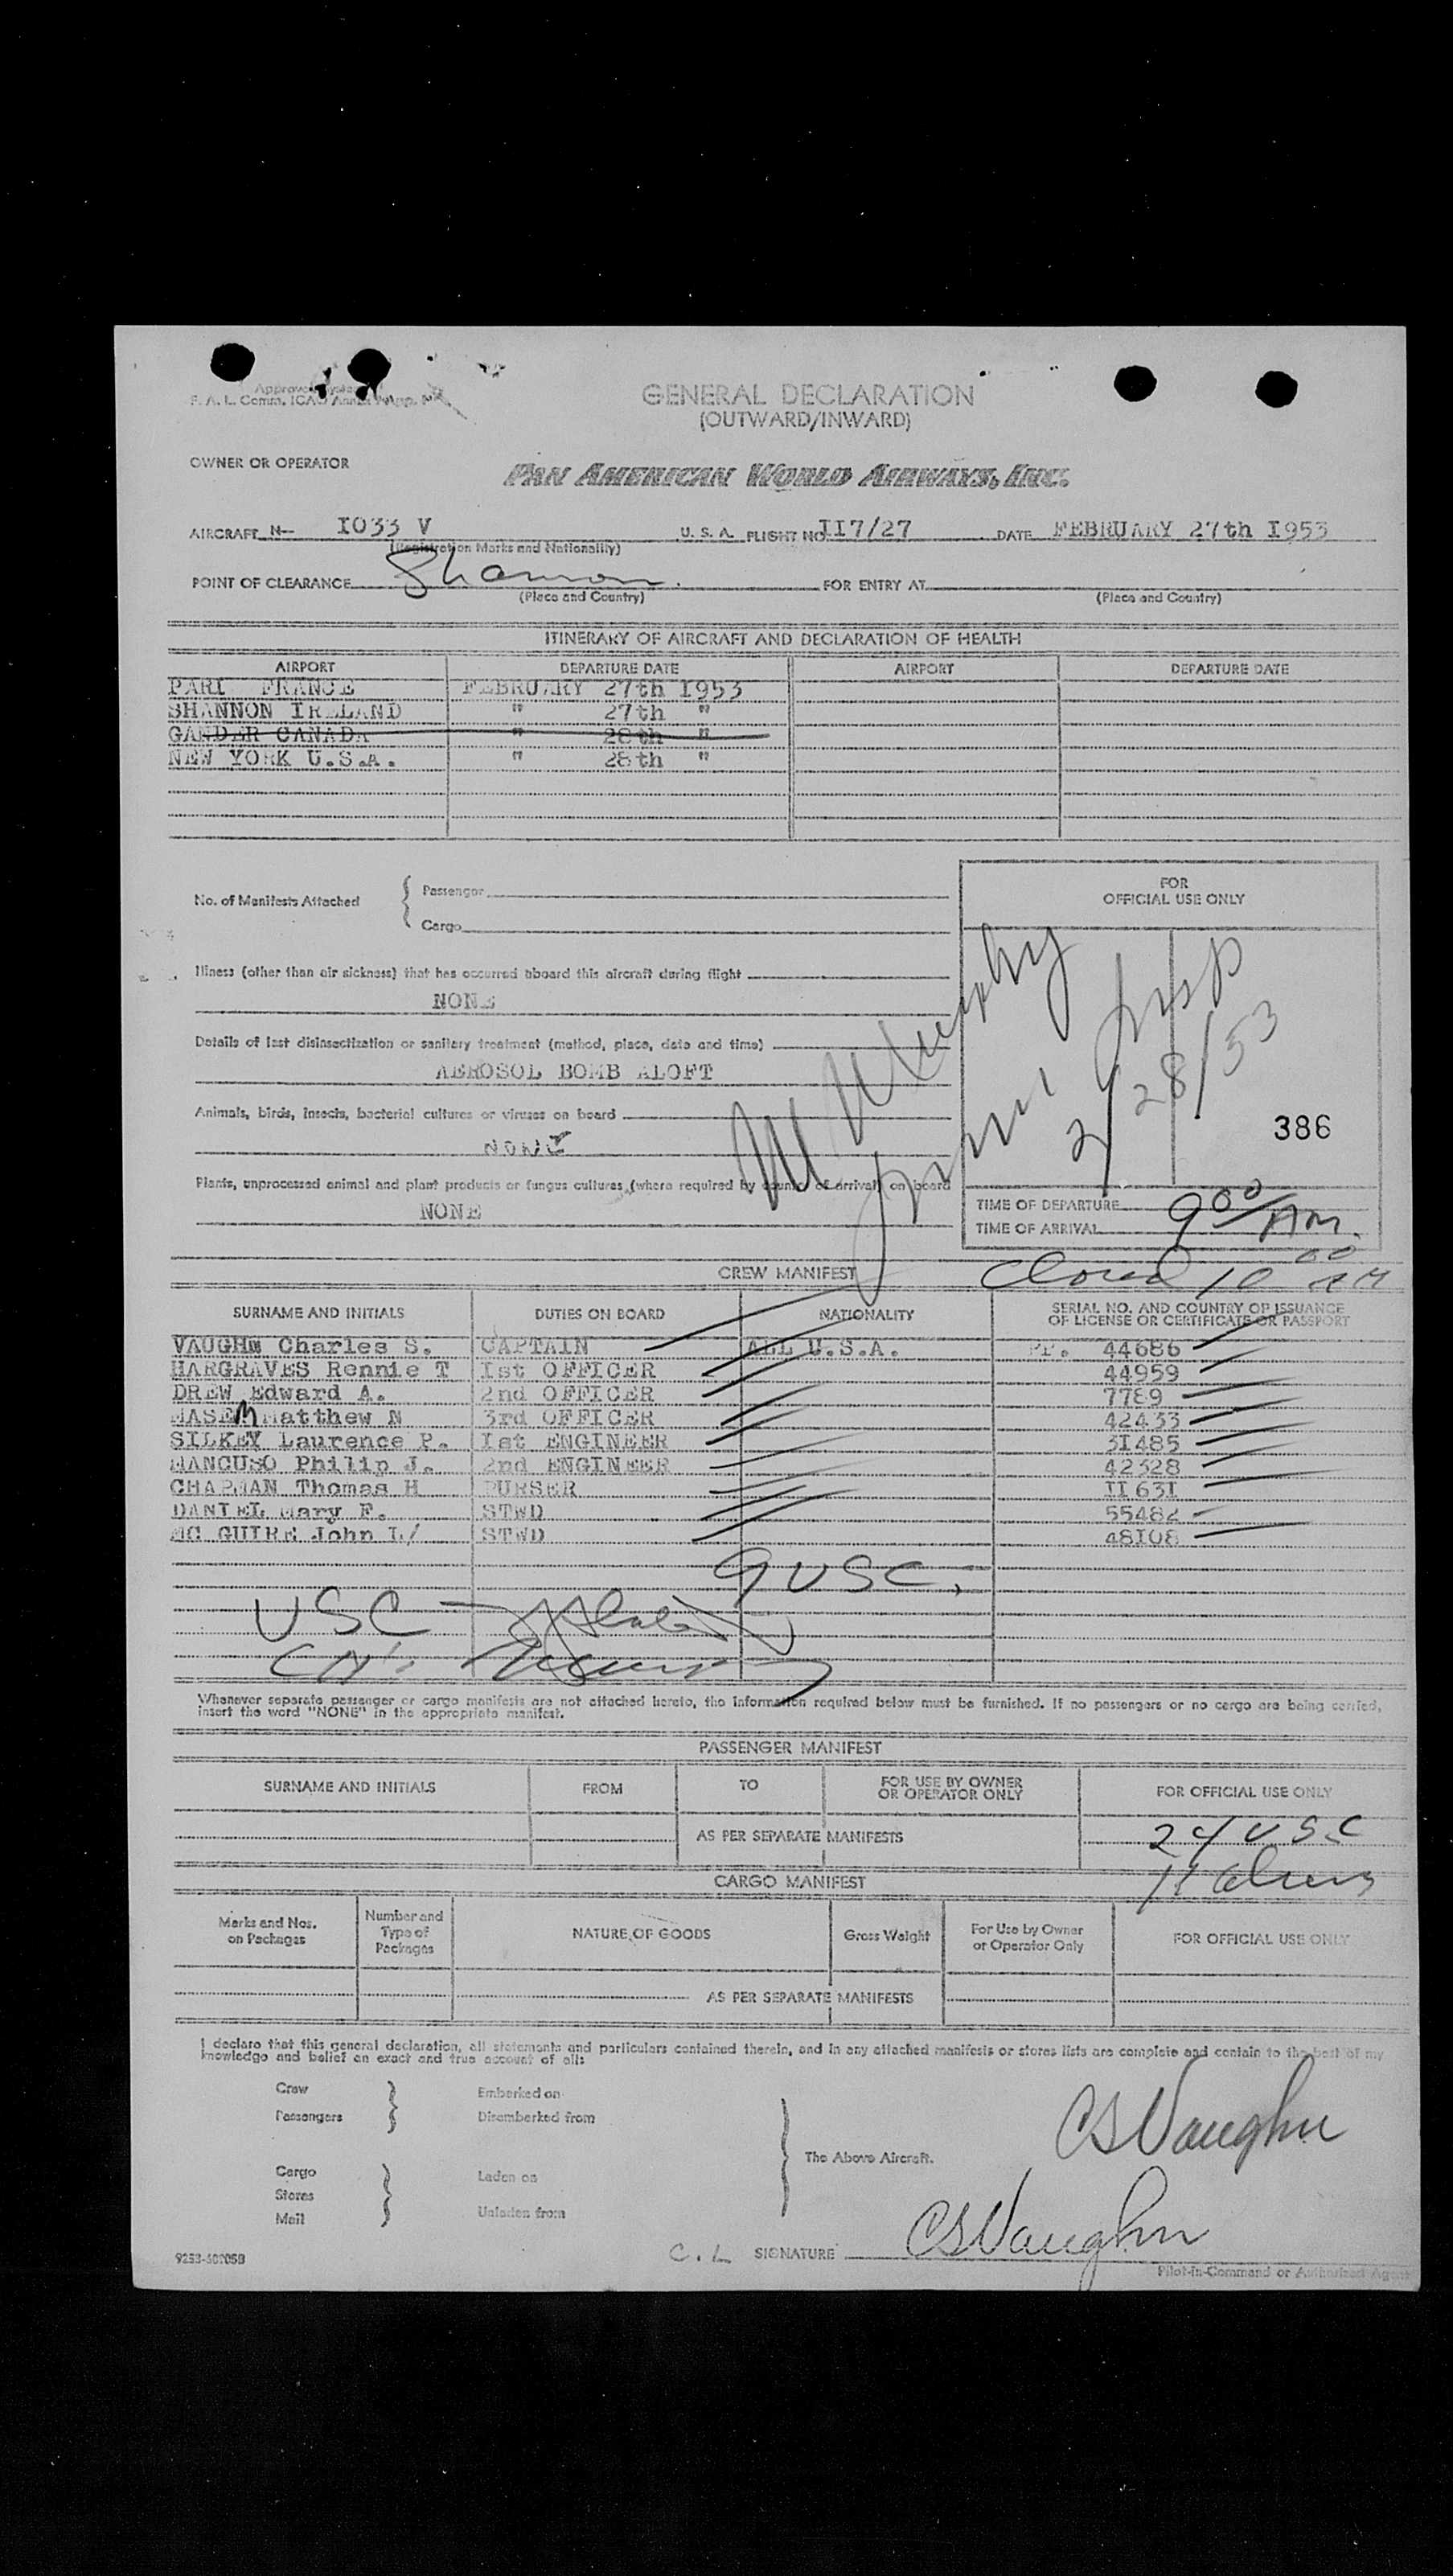 GENERAL DECLARATION
(OUTWARD/INWARD)
OWNER OR OPERATOR
PAN AMERICAN WORLD AIRWAYS, INC.
AIRCRAFT N- I033 V U. S. A. FLIGHT NO. II7/27 DATE FEBRUARY 27th I953
(Registration Marks and Nationality)
POINT OF CLEARANCE Shannon. FOR ENTRY AT
(Place and Country) (Place and Country)
ITINERARY OF AIRCRAFT AND DECLARATION OF HEALTH
AIRPORT DEPARTURE DATE AIRPORT DEPARTURE DATE
PARI FRANCE FEBRUARY 27th I953
SHANNON IRELAND " 27th "
GANDER CANADA " 28th "
NEW YORK U.S.A. " 28th "
No. of Manifests Attached
Passenger
Cargo
FOR
OFFICIAL USE ONLY
Illness (other than air sickness) that has occurred aboard this aircraft during flight
NONE
Details of last disinsectization or sanitary treatment (method, place, date and time)
AEROSOL BOMB ALOFT
Animals, birds, insects, bacterial cultures or viruses on board
NONE
Plants, unprocessed animal and plant products or fungus cultures (where required by country of arrival) on board
NONE
Murphy
2/28/53
386
TIME OF DEPARTURE
TIME OF ARRIVAL 9 00 AM.
Closed 10 00 AM
CREW MANIFEST
SURNAME AND INITIALS DUTIES ON BOARD NATIONALITY SERIAL NO. AND COUNTRY OF ISSUANCE
OF LICENSE OR CERTIFICATE OR PASSPORT
VAUGHN Charles S. CAPTAIN ALL U.S.A. PP. 44686
HARGRAVES Rennie T Ist OFFICER 44959
DREW Edward A. 2nd OFFICER 7789
MASEM Matthew N 3rd OFFICER 42433
SILKEY Laurence P. Ist ENGINEER 3I485
MANCUSO Philip J. 2nd ENGINEER 42328
CHAPMAN Thomas H PURSER II63I
DANIEL Mary F. STWD 55482
MC GUIRE John L/ STWD 48I08
9 USC.
USC
Whenever separate passenger or cargo manifests are not attached hereto, the information required below must be furnished. If no passengers or no cargo are being carried,
insert the word "NONE" in the appropriate manifest.
PASSENGER MANIFEST
SURNAME AND INITIALS FROM TO FOR USE BY OWNER
OR OPERATOR ONLY FOR OFFICIAL USE ONLY
AS PER SEPARATE MANIFESTS
24 USC
11 aliens
CARGO MANIFEST
Marks and Nos.
on Packages
Number and
Type of
Packages
NATURE OF GOODS Gross Weight
For Use by Owner
or Operator Only
FOR OFFICIAL USE ONLY
AS PER SEPARATE MANIFESTS
I declare that this general declaration, all statements and particulars contained therein, and in any attached manifests or stores lists are complete and contain to the best of my
knowledge and belief an exact and true account of all:
Crew Embarked on
Passengers Disembarked from
The Above Aircraft.
Cargo Laden on
Stores
Mail Unladen from
CSVaughn
C. L SIGNATURE CSVaughn
Pilot-in-Command or Authorized Agent